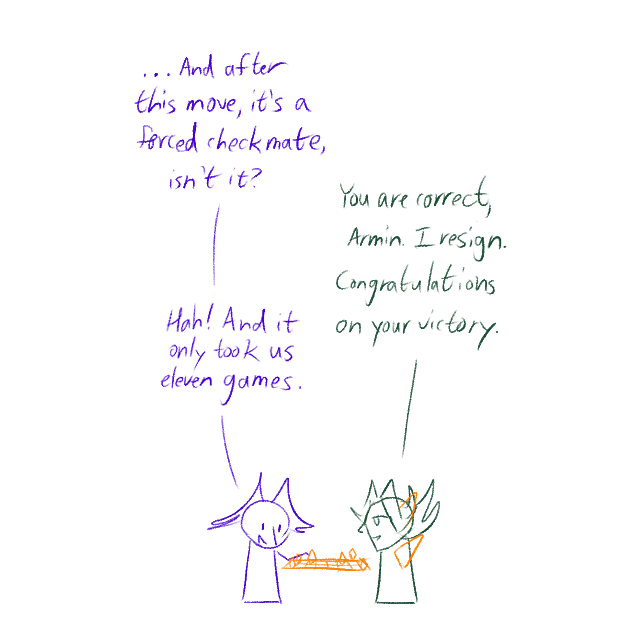 ... And after
this move, it's a
forced checkmate,
isn't it?
You are correct,
Armin. I resign.
Congratulations
on your victory.
Hah! And it
only took us
eleven games.